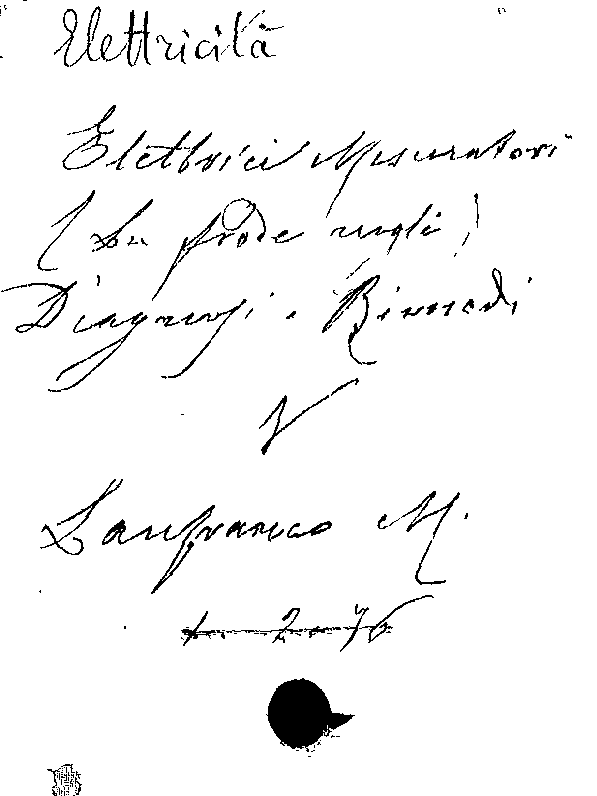 Elettricità
Elettrici Mesuratori
(La frode negli)
Diagnosi. Rimedi
V
Lanfranco M.
1. 2. 76